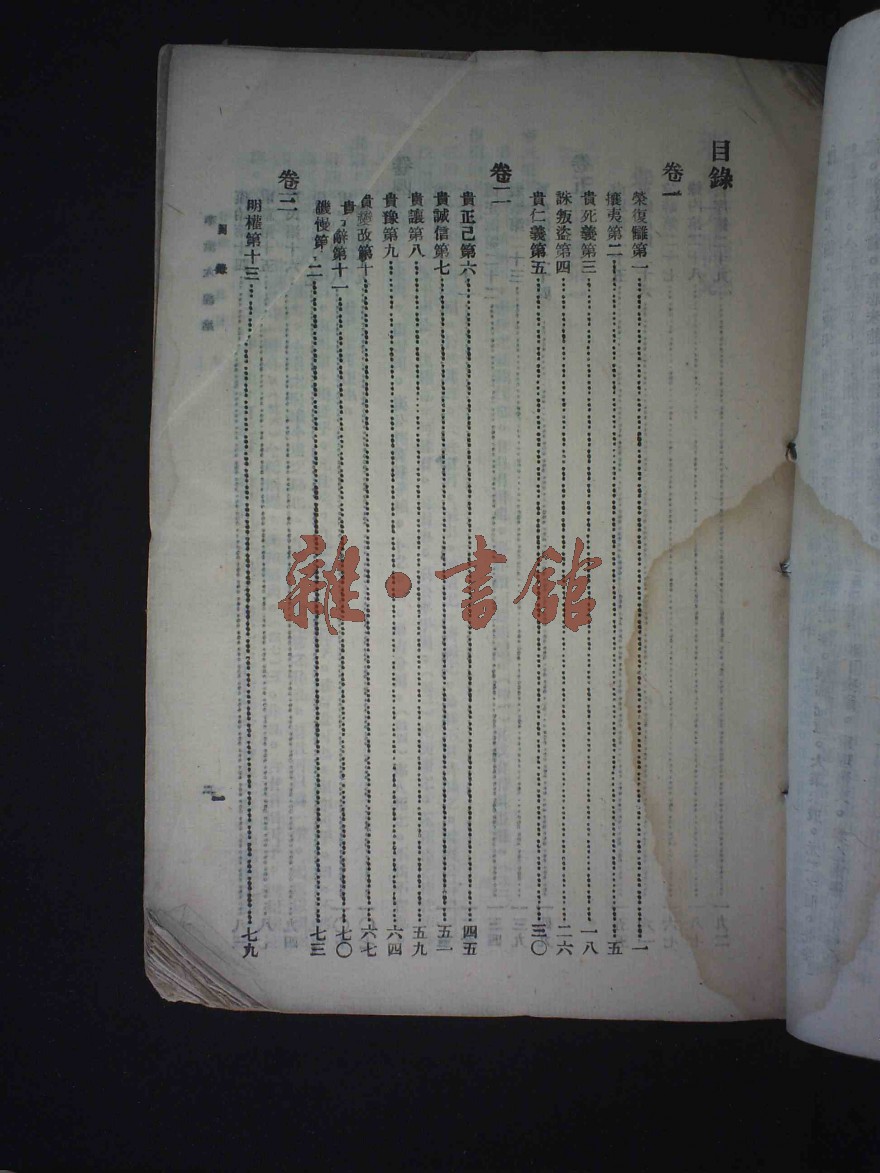 目錄
卷一
榮復讎第一 一
攘夷第二 五
貴死義第三 一八
誅叛盜第四 二六
貴仁義第五 三〇
卷二
貴正己第六 四五
貴誠信第七 五一
貴讓第八 五九
貴豫第九 六四
貴 改第十 六七
貴 辭第十一 七〇
譏慢第 二 七三
卷三
明權第十三 七九
目錄
一
雜·書館